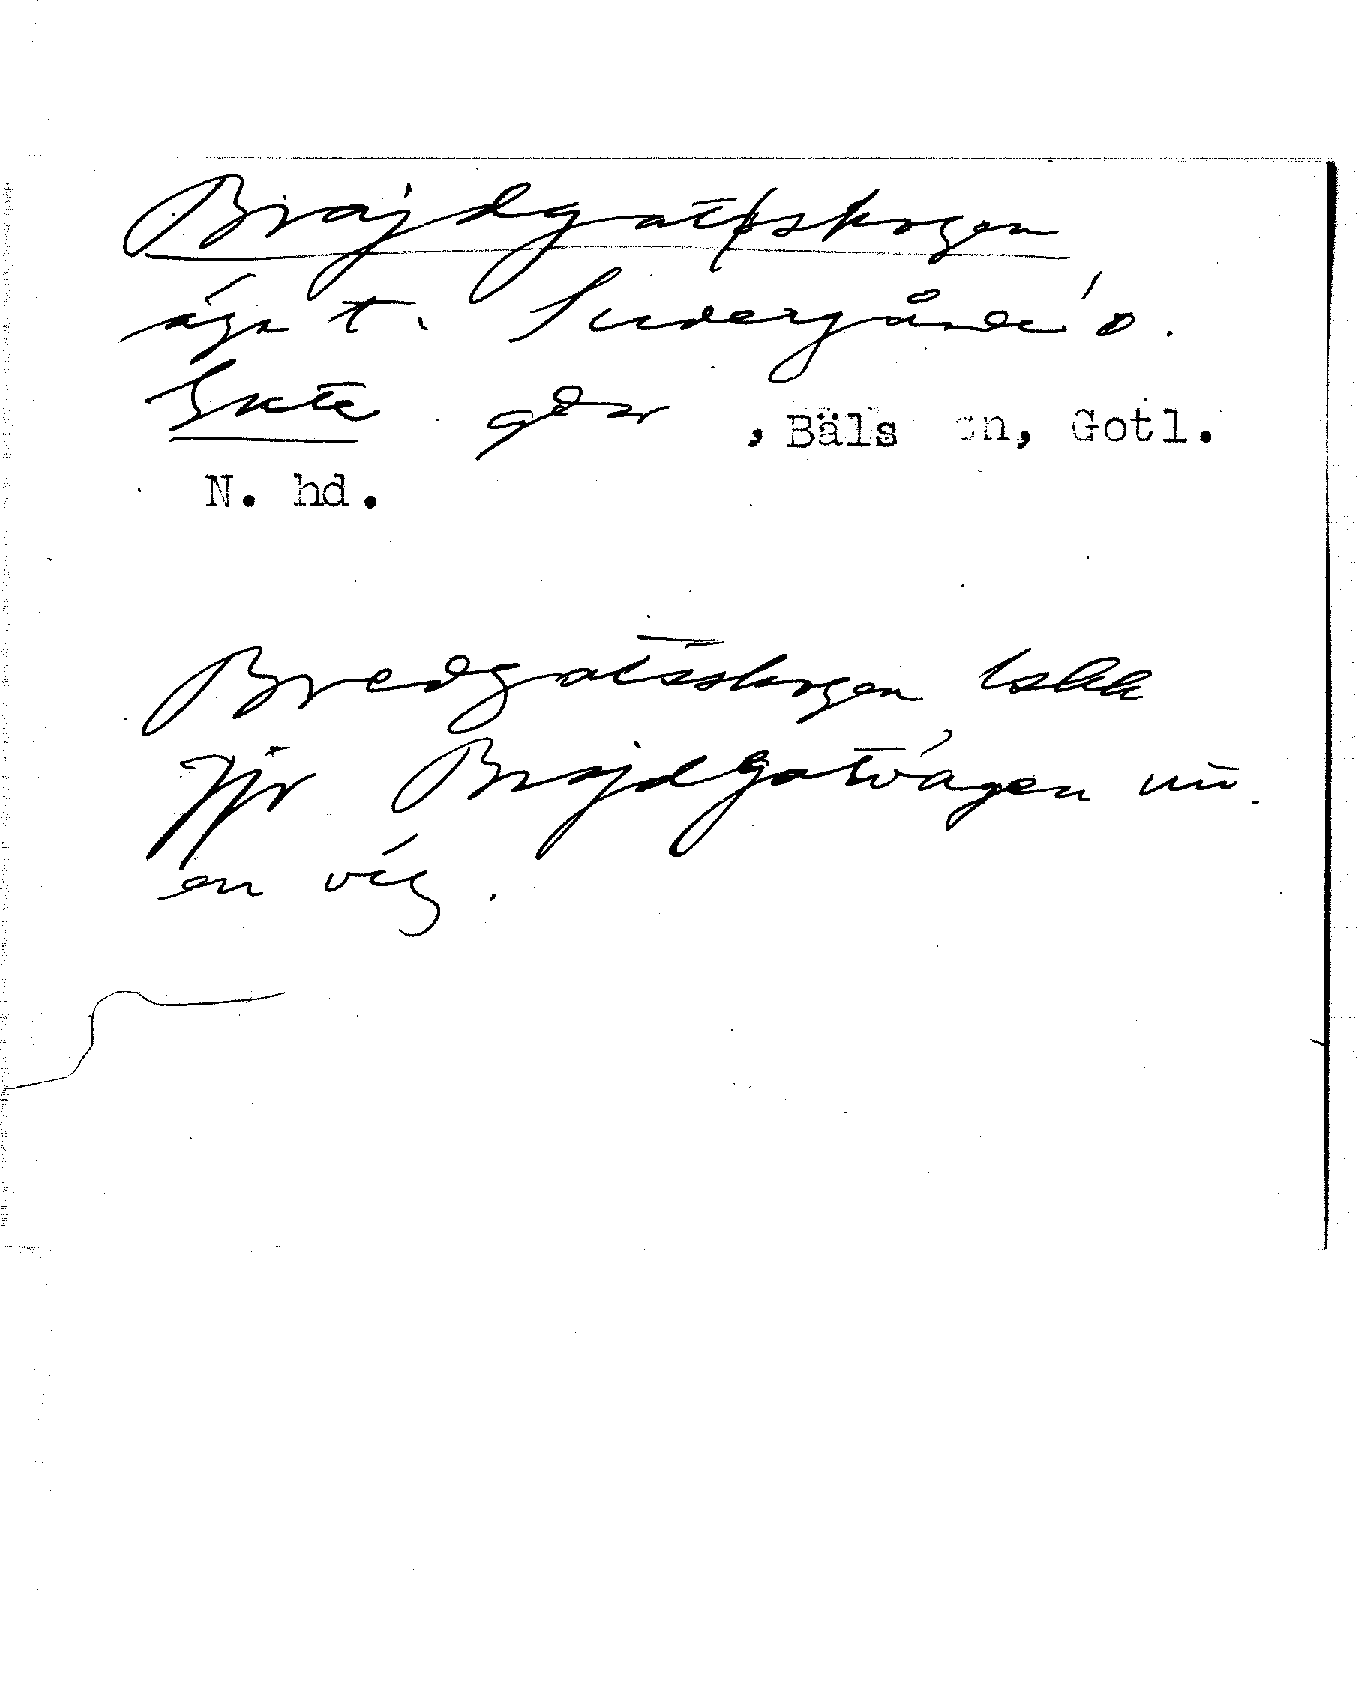 Brajdgatpskogen
äga t. Sudergårda o.
Gute gdr , Bäls en, Gotl.
N. hd.
Bredgatsskogen
Jfr Brajdgatvägen nu
en väg.